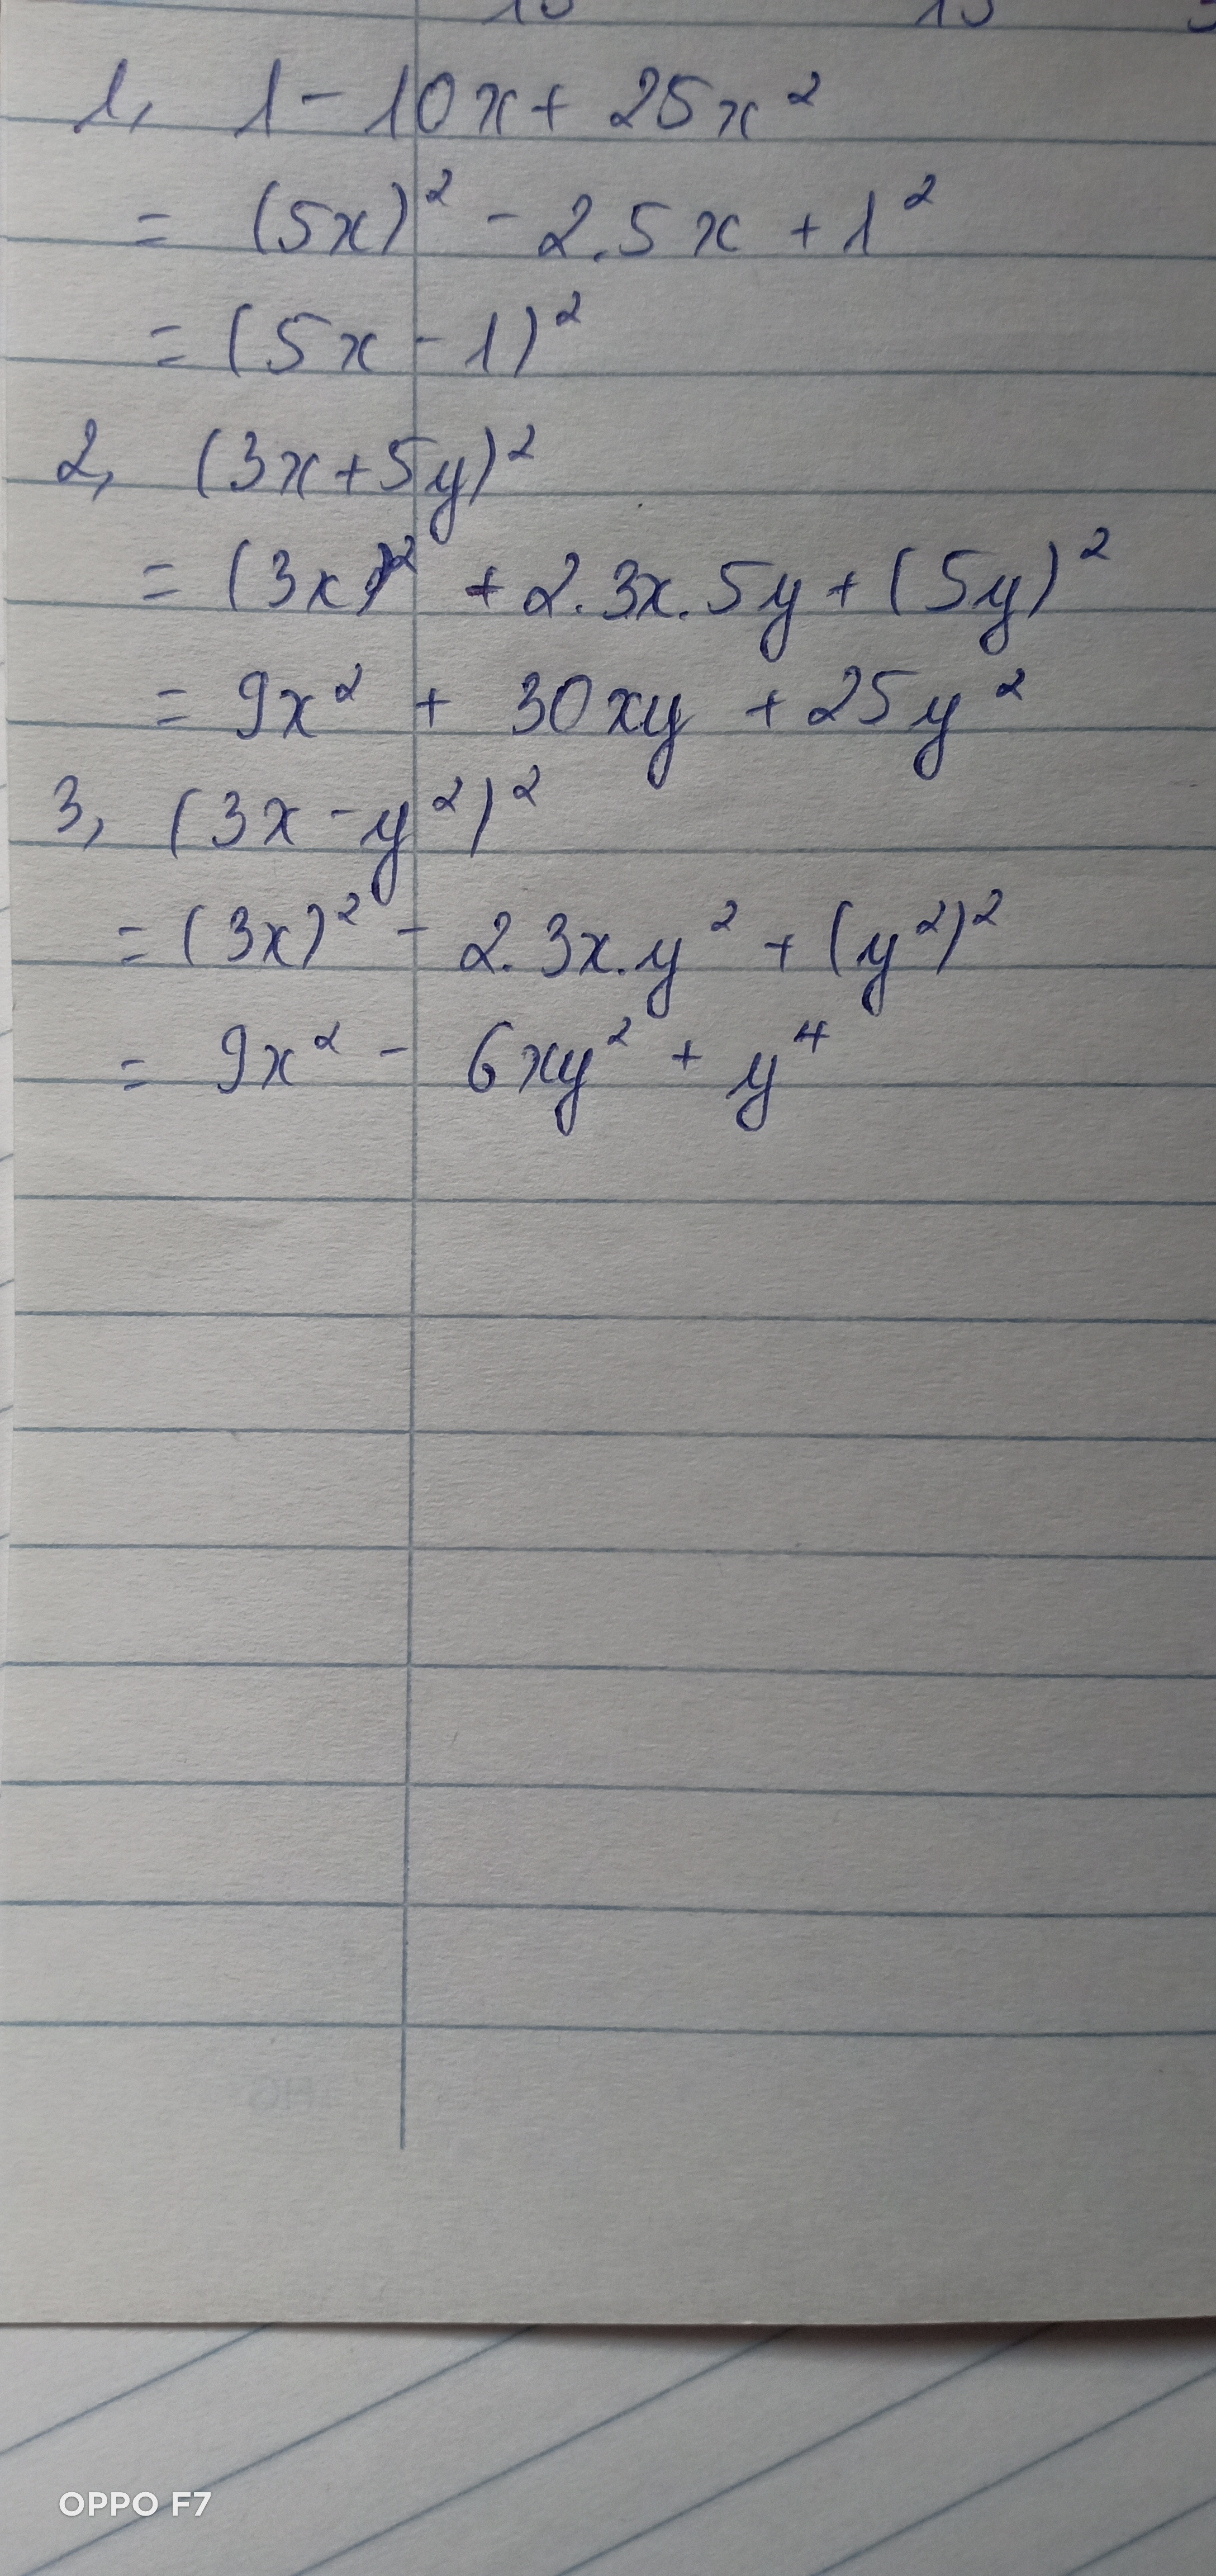 1, 1 - 10x + 25x²
= (5x)² - 2.5x + 1²
= (5x - 1)²
2, (3x + 5y)²
= (3x)² + 2.3x.5y + (5y)²
= 9x² + 30xy + 25y²
3, (3x - y²)²
= (3x)² - 2.3x.y² + (y²)²
= 9x² - 6xy² + y⁴
OPPO F7